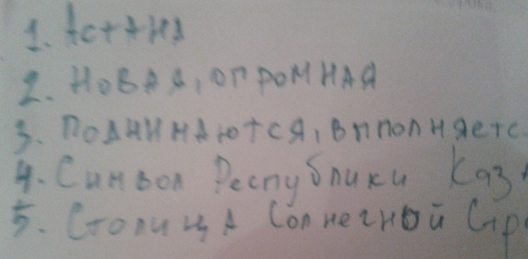 1. Астана
2. Новая, огромная
3. Поднимаются, выполняетс
4. Символ Республики Каз
5. Столица Солнечной Стр